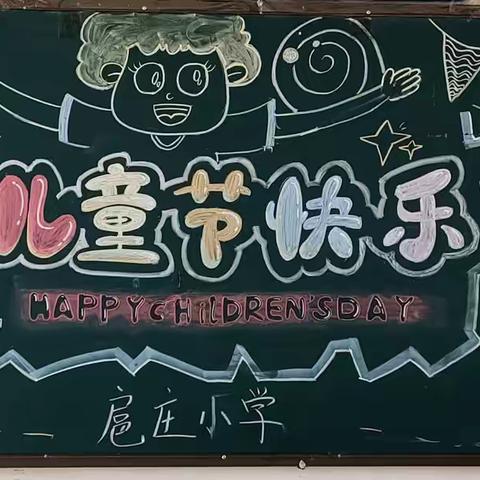 儿童节快乐
HAPPYCHilDREN'SDAY
扈庄小学